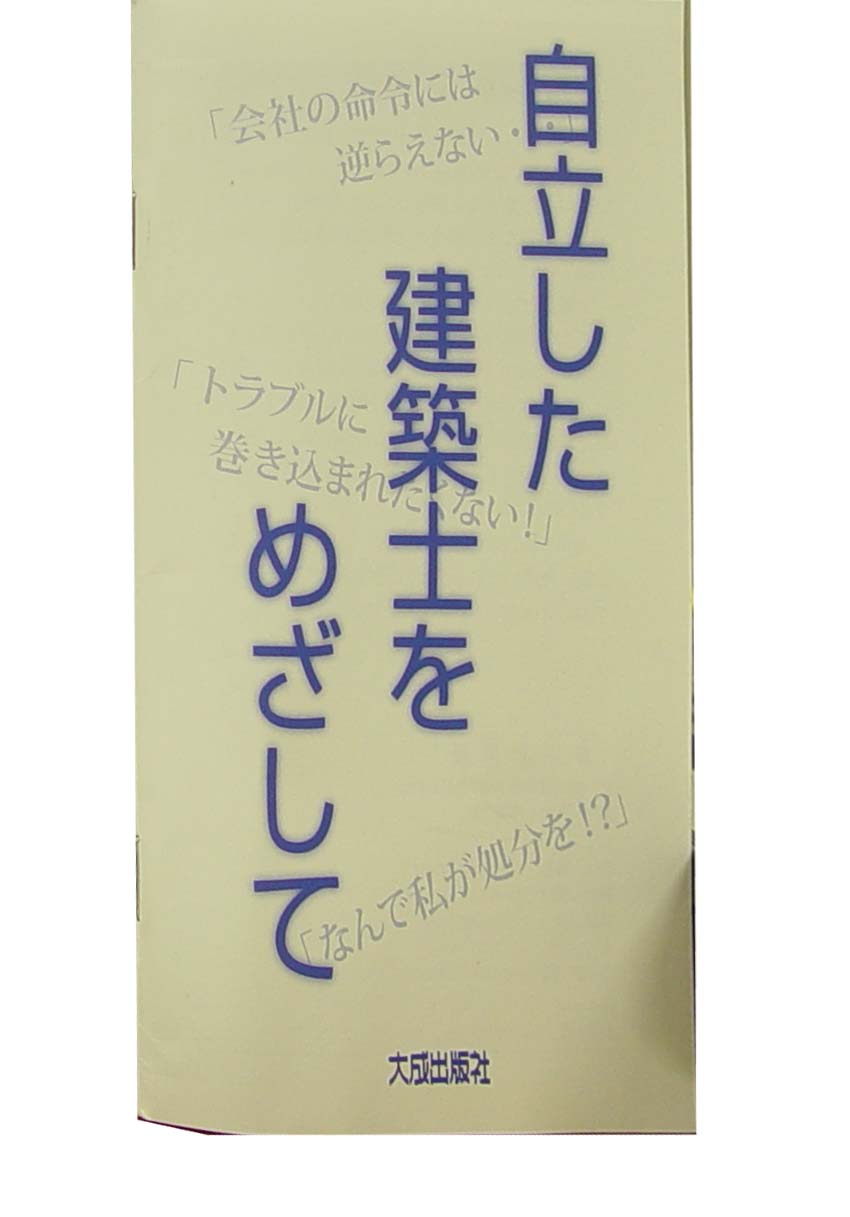 自立した
建築士を
めざして
「会社の命令には
逆らえない・・」
「トラブルに
巻き込まれたくない!」
「なんで私が処分を!?」
大成出版社